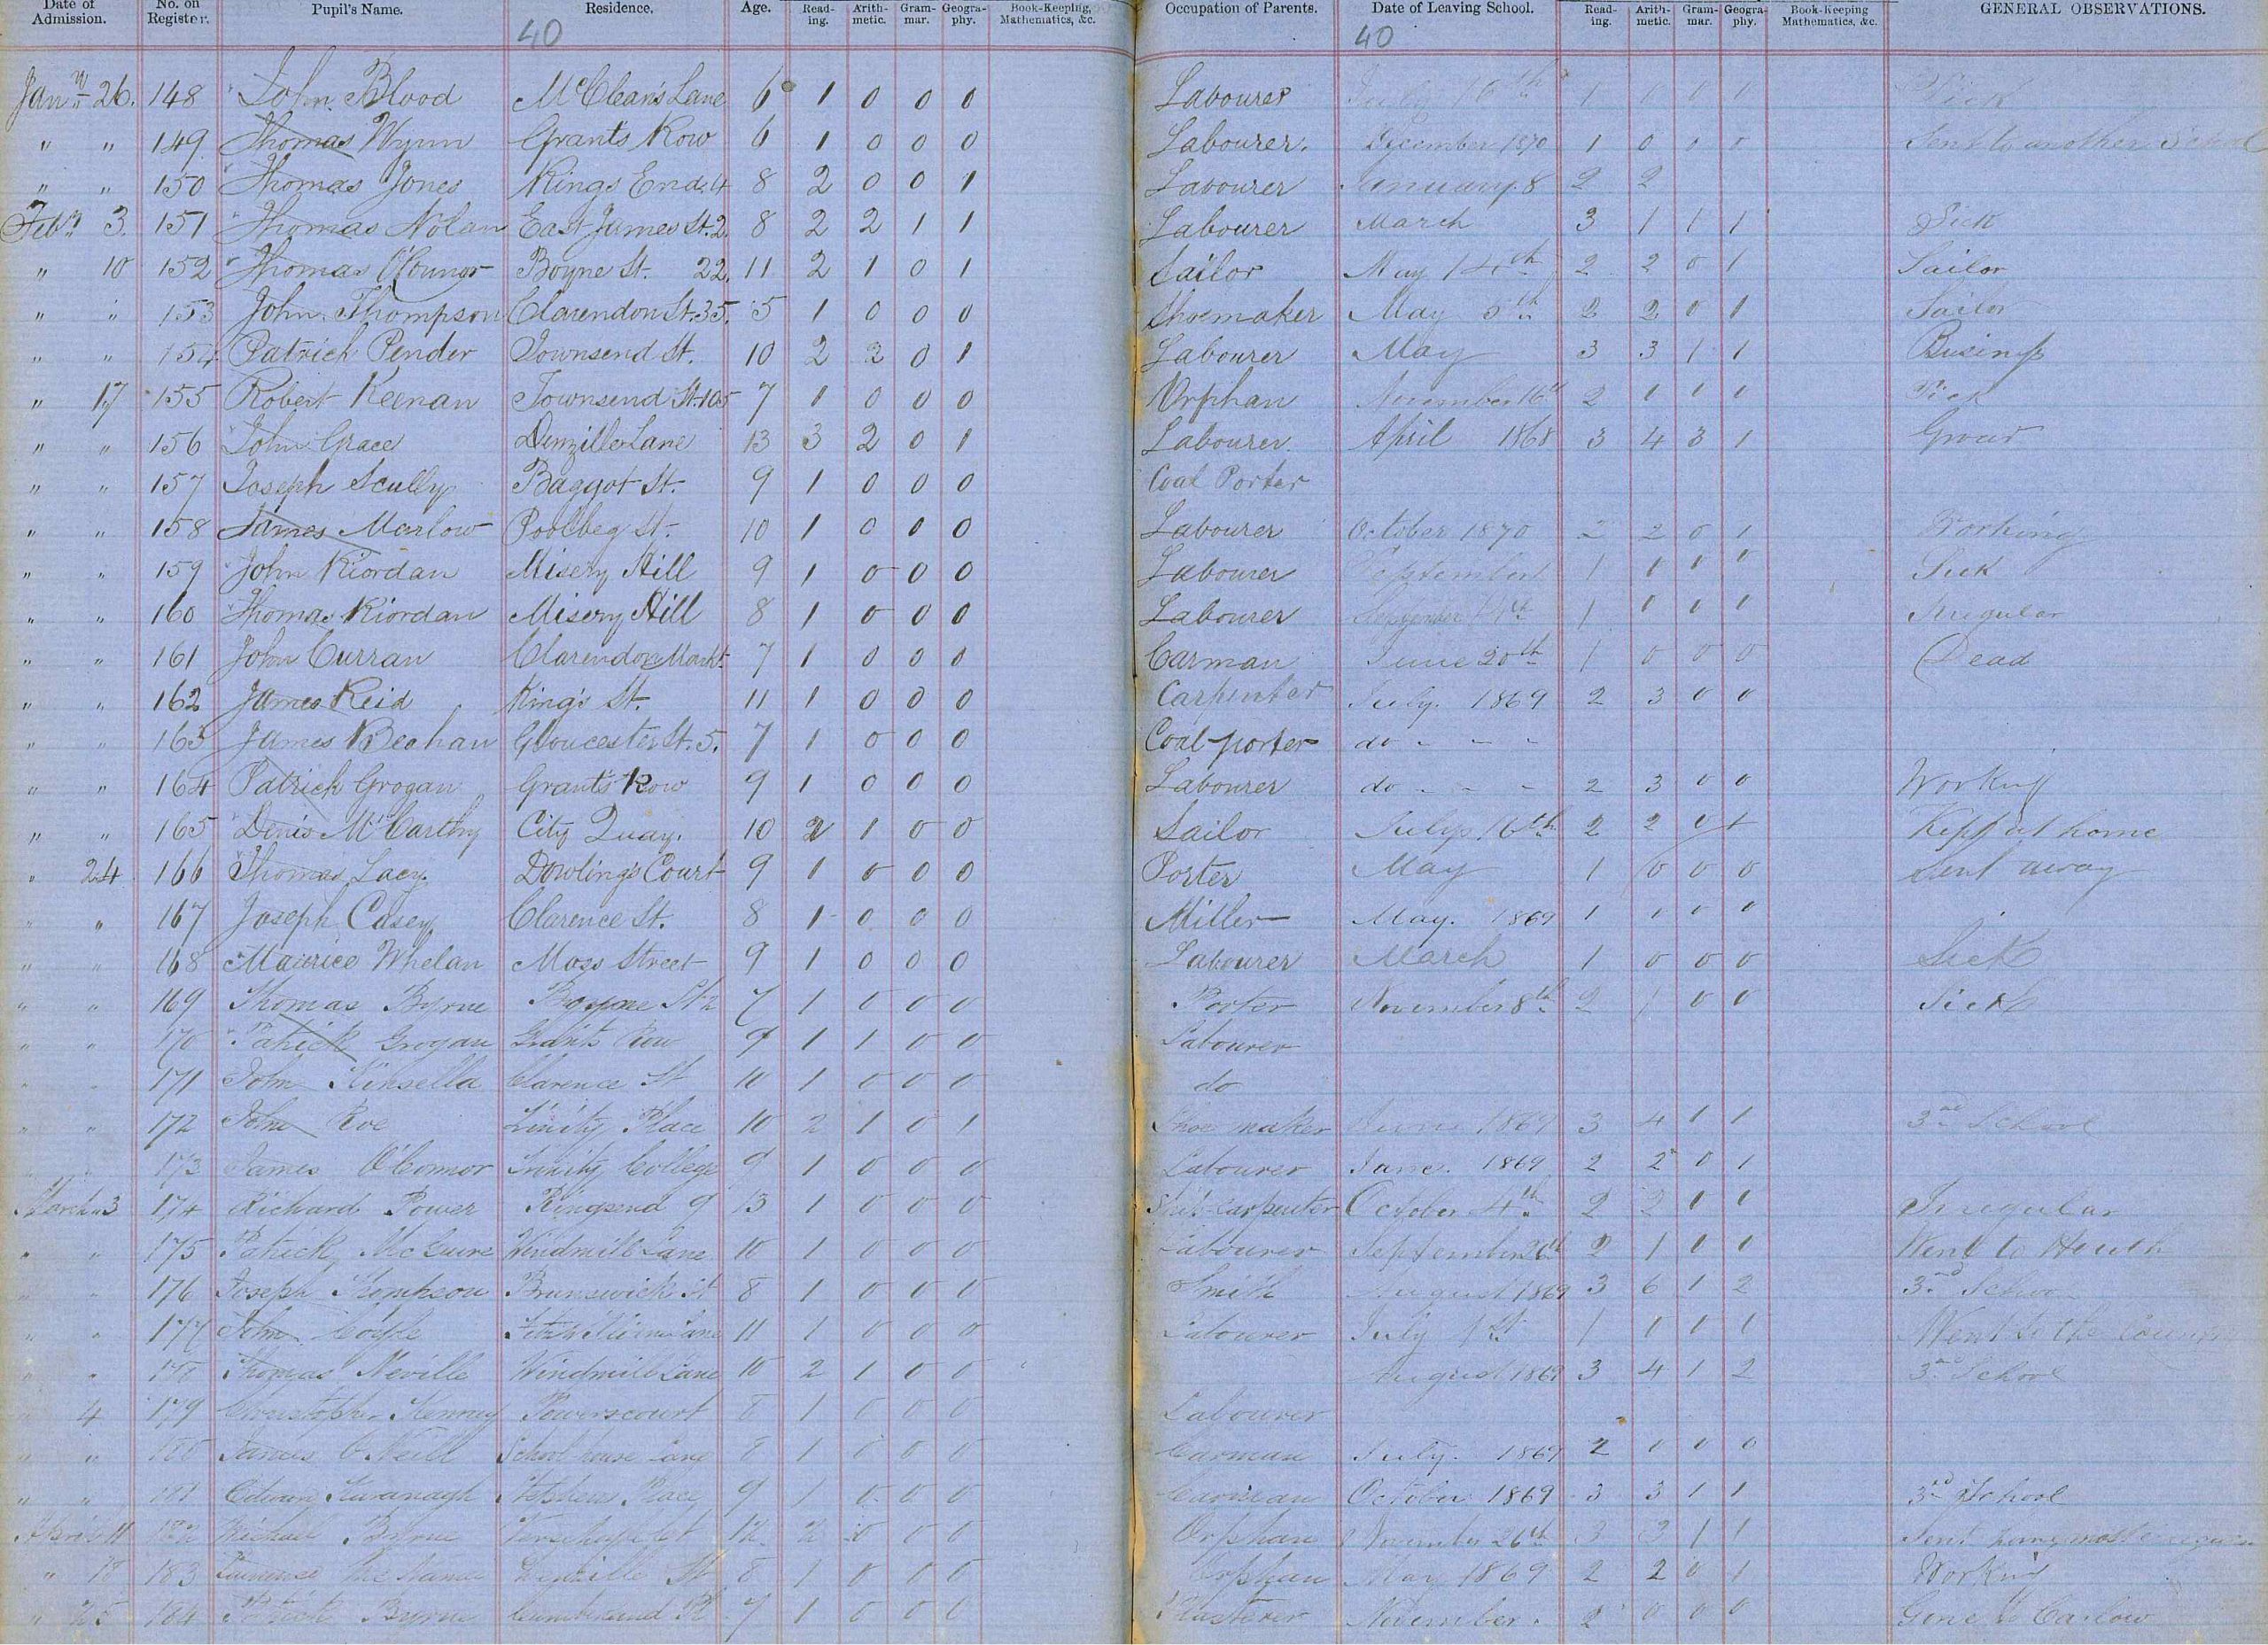 Date of Admission. No. on Register. Pupil's Name. Residence. Age. Read-ing. Arith-metic. Gram-mar. Geogra-phy. Book-Keeping, Mathematics, &c. Occupation of Parents. Date of Leaving School. Read-ing. Arith-metic. Gram-mar. Geogra-phy. Book-Keeping Mathematics, &c. GENERAL OBSERVATIONS.
40 40
Jany 26. 148 John Blood McClean's Lane 6 1 0 0 0 Labourer July 16th 1 0 0 1 Sick
" " 149 Thomas Wynn Grant's Row 6 1 0 0 0 Labourer. December 1870 1 0 0 0 Sent to another School
" " 150 Thomas Jones Kings End. 4 8 2 0 0 1 Labourer January 8 2 2
Feby 3. 151 Thomas Nolan East James St. 2. 8 2 2 1 1 Labourer March 3 1 1 1 Sick
" 10 152 Thomas O'Connor Boyne St. 22. 11 2 1 0 1 Sailor May 14th 2 2 0 1 Sailor
" " 153 John Thompson Clarendon St. 35. 5 1 0 0 0 Shoemaker May 5th 2 2 0 1 Sailor
" " 154 Patrick Pender Townsend St. 10 2 2 0 1 Labourer May 3 3 1 1 Business
" 17 155 Robert Keenan Townsend St. 105 7 1 0 0 0 Orphan November 16th 2 1 0 0 Sick
" " 156 John Grace Denzille Lane 13 3 2 0 1 Labourer. April 1868 3 4 3 1
" " 157 Joseph Scully Baggot St. 9 1 0 0 0 Coal Porter
" " 158 James Marlow Poolbeg St. 10 1 0 0 0 Labourer October 1870 2 2 0 1 Working
" " 159 John Riordan Misery Hill 9 1 0 0 0 Labourer September 1 1 0 0 0 Sick
" " 160 Thomas Riordan Misery Hill 8 1 0 0 0 Labourer September 1 0 0 1 Irregular
" " 161 John Curran Clarendon Markt. 7 1 0 0 0 Carman June 20th 1 0 0 0 Dead
" " 162 James Reid King's St. 11 1 0 0 0 Carpenter July. 1869 2 3 0 0
" " 163 James Beahan Gloucester St. 5. 7 1 0 0 0 Coal-porter do - - -
" " 164 Patrick Grogan Grant's Row 9 1 0 0 0 Labourer do - - - 2 3 0 0 Working
" " 165 Denis McCarthy City Quay. 10 2 1 0 0 Sailor July 16th 2 2 0 1 Kept at home
" 24 166 Thomas Lacy. Dowling's Court 9 1 0 0 0 Porter May 1 0 0 0 Sent away
" " 167 Joseph Casey. Clarence St. 8 1 0 0 0 Miller May. 1869 1 0 0 0
" " 168 Maurice Whelan Moss Street 9 1 0 0 0 Labourer March 1 0 0 0 Sick
" " 169 Thomas Byrne Boyne St 2 7 1 0 0 0 Porter November 8th 2 1 0 0 Sick
" " 170 Patrick Grogan Grants Row 9 1 1 0 0 Labourer
" " 171 John Kinsella Clarence St 10 1 0 0 0 do
" " 172 John Roe Trinity Place 10 2 1 0 1 Shoe maker June 1869 3 4 1 1 3rd School
" " 173 James O'Connor Trinity College 9 1 0 0 0 Labourer June. 1869 2 2 0 1
March 3 174 Richard Power Ringsend 9 13 1 0 0 0 Ship-Carpenter October 4th 2 2 1 1 Irregular
" " 175 Patrick McGuire Windmill Lane 10 1 0 0 0 Labourer September 26th 2 1 0 0 Went to Howth
" " 176 Joseph Thompson Brunswick St 8 1 0 0 0 Smith August 1869 3 6 1 2 3rd School
" " 177 John Coyle Fitzwilliam Lane 11 1 0 0 0 Labourer July 1st 1 1 1 1 Went to the Country
" " 178 Thomas Neville Windmill Lane 10 2 1 0 0 August 1869 3 4 1 2 3rd School
" 4 179 Christopher Kenny Powerscourt 8 1 0 0 0 Labourer
" " 180 James O'Neill School house Lane 8 1 0 0 0 Carman July. 1869 2 0 0 0
" " 181 Edward Kavanagh Stephen Place 9 1 0 0 0 October 1869 3 3 1 1 3rd School
April 11 182 Michael Byrne 12 2 0 0 0 Orphan November 26th 3 3 1 1 Sent
" 18 183 Laurence McNamee Denzille St 8 1 0 0 0 Orphan May 1869 2 2 0 1 Working
" 25 184 Patrick Byrne Cumberland St 7 1 0 0 0 Plasterer November. 2 0 0 0 Gone to Carlow